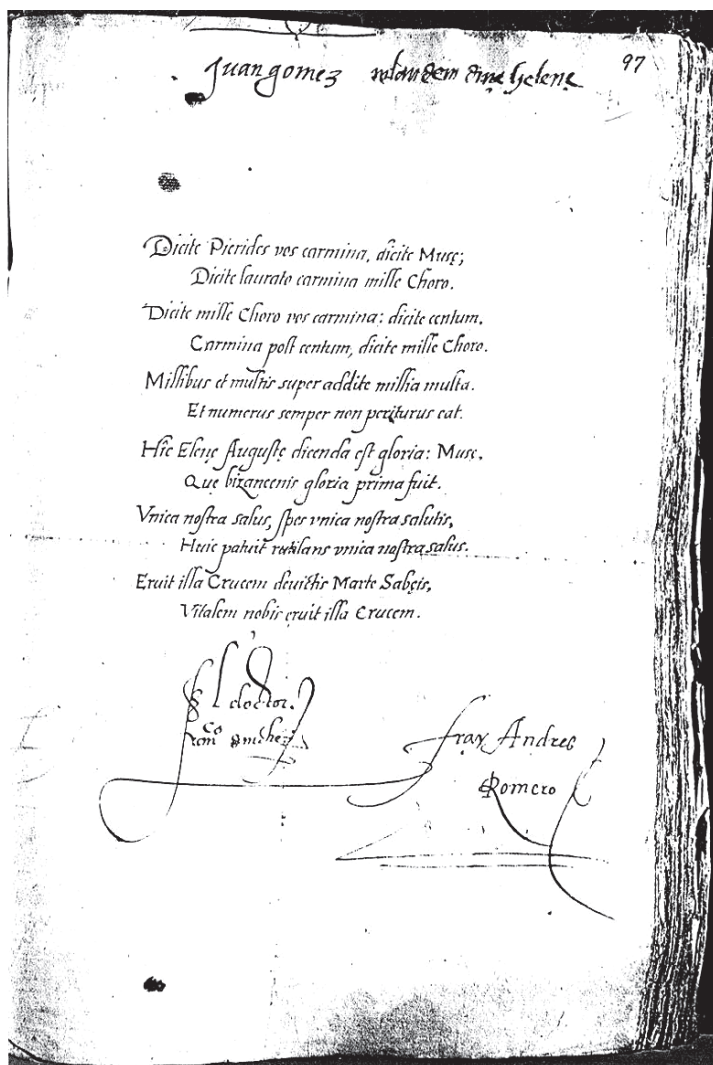 97
Juan gomez in laudem diue helenę
Dicite Pierides vos carmina, dicite Musę;
Dicite laurato carmina mille Choro.
Dicite mille Choro vos carmina: dicite centum,
Carmina post centum, dicite mille Choro.
Millibus et multis super addite millia multa.
Et numerus semper non periturus eat.
Hîc Elenę Augustę dicenda est gloria: Musę,
Quę bizancenis gloria prima fuit.
Vnica nostra salus, spes vnica nostra salutis,
Huic patuit rutilans vnica nostra salus.
Eruit illa Crucem deuictis Marte Sabęis,
Vitalem nobis eruit illa Crucem.
El doctor
fray Andres
Romero